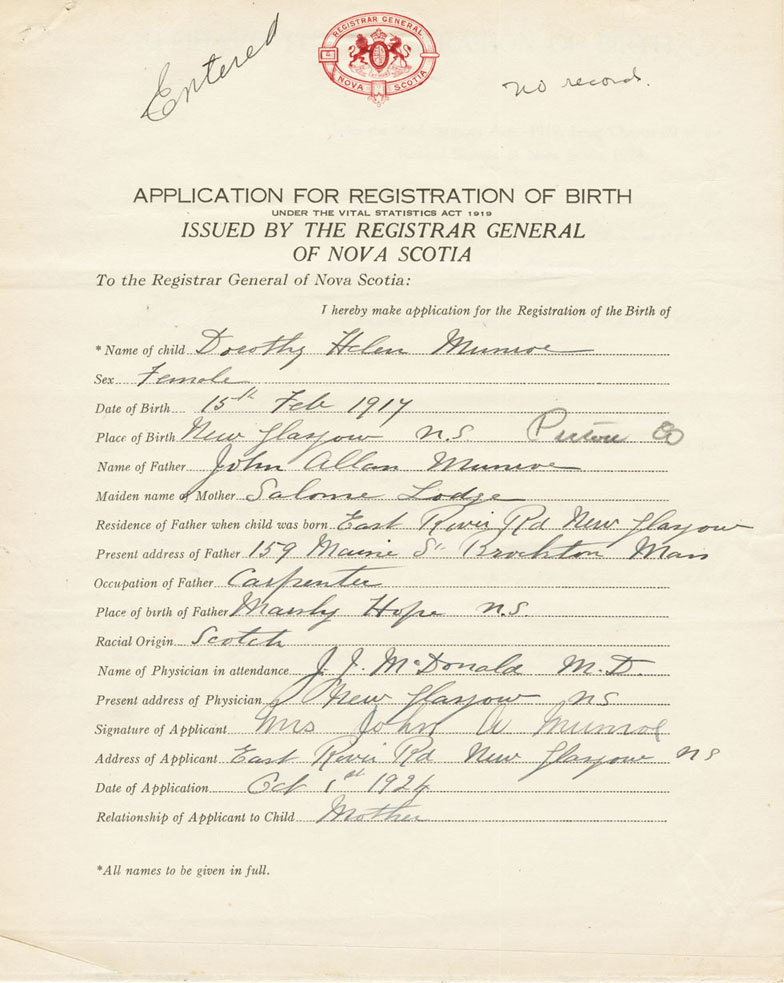 Entered
REGISTRAR GENERAL
NOVA SCOTIA
no record.
APPLICATION FOR REGISTRATION OF BIRTH
UNDER THE VITAL STATISTICS ACT 1919
ISSUED BY THE REGISTRAR GENERAL
OF NOVA SCOTIA
To the Registrar General of Nova Scotia:
I hereby make application for the Registration of the Birth of
* Name of child Dorothy Helen Munroe
Sex Female
Date of Birth 15th Feb 1917
Place of Birth New Glasgow N.S Pictou Co
Name of Father John Allan Munroe
Maiden name of Mother Salome Lodge
Residence of Father when child was born East River Rd New Glasgow
Present address of Father 159 Maine St Brockton Mass
Occupation of Father Carpenter
Place of birth of Father Hope N.S.
Racial Origin Scotch
Name of Physician in attendance J. J. McDonald M.D.
Present address of Physician New Glasgow NS
Signature of Applicant Mrs John A Munroe
Address of Applicant East River Rd New Glasgow NS
Date of Application Oct 1st 1924
Relationship of Applicant to Child Mother
*All names to be given in full.